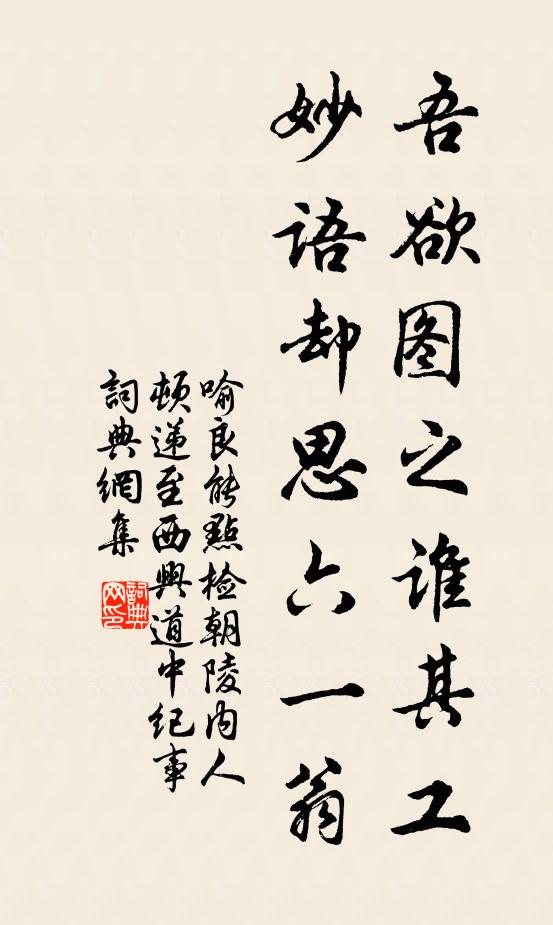 吾欲图之谁其工
妙语却思六一翁
喻良能點检朝陵内人
顿递至西興道中纪事
詞典網集
詞典网印